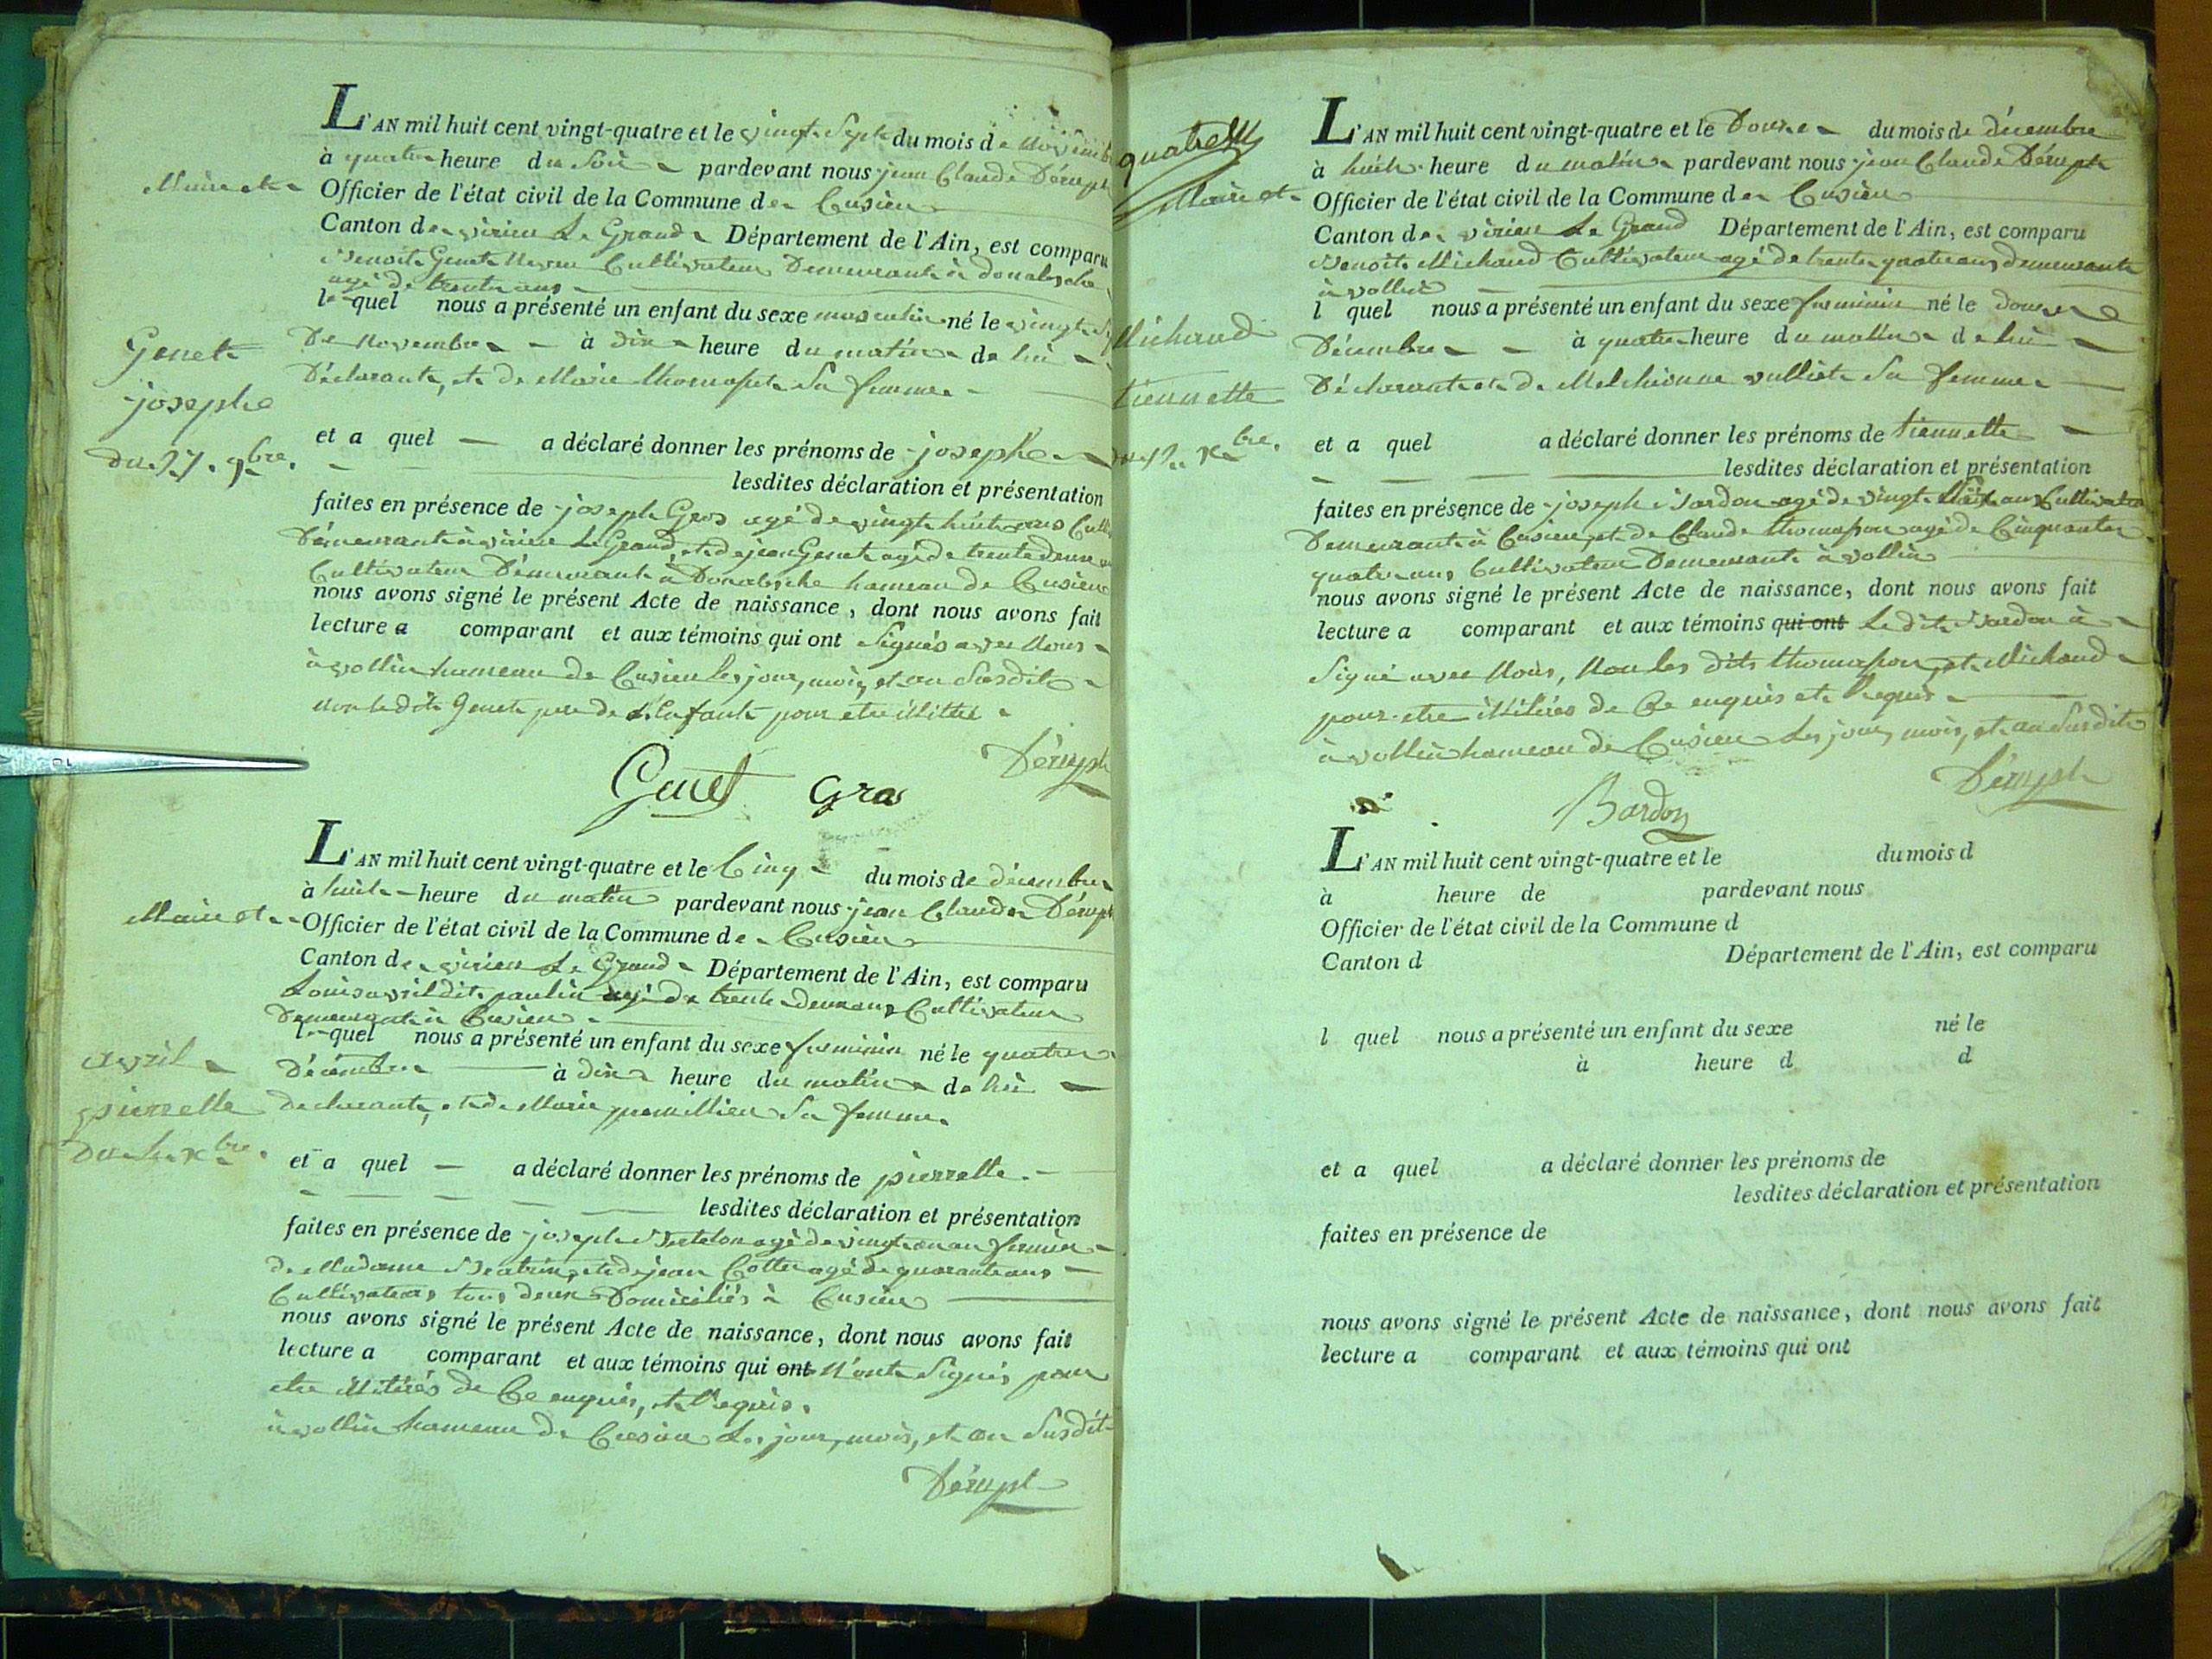 L'AN mil huit cent vingt-quatre et le vingt Sept du mois de Novembre
à quatre heure du Soir pardevant nous jean Claude Dérupt
Maire et
Officier de l'état civil de la Commune de Cusieu
Canton de virieu Le Grand Département de l'Ain, est comparu
Benoit Genet Cultivateur Demeurant à
agé de trente ans
le quel nous a présenté un enfant du sexe masculin né le vingt
De Novembre à dix heure du matin de lui
Genet
Déclarant, et de Marie thomasset Sa femme
josephe
et a quel a déclaré donner les prénoms de josephe
du 27. 9bre.
lesdites déclaration et présentation
faites en présence de joseph Gros agé de vingt huit ans
Demeurant à virieu Le Grand, et de jean Genet agé de trente deux
Cultivateur Demeurant à hameau de Cusieu
nous avons signé le présent Acte de naissance, dont nous avons fait
lecture a comparant et aux témoins qui ont Signés avec Nous
à vollin hameau de Cusieu les jour, mois, et an Susdit
non le dit Genet pere de L'Enfant pour etre illitté
Dérupt
Genet Gros
L'AN mil huit cent vingt-quatre et le Cinq du mois de décembre
à huit heure du matin pardevant nous jean Claude Dérupt
Maire et Officier de l'état civil de la Commune de Cusieu
Canton de virieu Le Grand Département de l'Ain, est comparu
Louis avril dit paulin agé de trente deux ans Cultivateur
Demeurant à Cusieu
le quel nous a présenté un enfant du sexe feminin né le quatre
avril
Décembre à dix heure du matin de lui
pierrette
declarant, et de Marie Sa femme
et a quel a déclaré donner les prénoms de pierrette
lesdites déclaration et présentation
faites en présence de joseph Berthelon agé de vingt
de Madame et de jean Cottin agé de quarante ans
Cultivateurs tous deux Domiciliés à Cusieu
nous avons signé le présent Acte de naissance, dont nous avons fait
lecture a comparant et aux témoins qui ont N'ont Signés pour
etre illitérés de Ce enquis, et Requis.
à vollin hameau de Cusieu Les jour, mois, et an Susdit
Dérupt
L'AN mil huit cent vingt-quatre et le Douze du mois de décembre
à huit heure du matin pardevant nous jean Claude Dérupt
Maire et
Officier de l'état civil de la Commune de Cusieu
Canton de virieu Le Grand Département de l'Ain, est comparu
Benoit Michaud Cultivateur agé de trente quatre ans demeurant
à vollin
l quel nous a présenté un enfant du sexe feminin né le douze
Michaud
Décembre à quatre heure du matin de lui
tiennette
Déclarant et de Melchionne vulliet Sa femme
et a quel a déclaré donner les prénoms de tiennette
du 12. xbre.
lesdites déclaration et présentation
faites en présence de joseph Bardon agé de vingt ans Cultivateur
Demeurant à Cusieu, et de Claude thomasson agé de Cinquante
quatre ans Cultivateur Demeurant à vollin
nous avons signé le présent Acte de naissance, dont nous avons fait
lecture a comparant et aux témoins qui ont Le dit Bardon à
Signé avec Nous, Non les dits thomasson, et Michaud
pour etre illitérés de Ce enquis et Requis
à vollin hameau de Cusieu Les jour, mois, et an Susdit
Dérupt
Bardon
L'AN mil huit cent vingt-quatre et le du mois d
à heure de pardevant nous
Officier de l'état civil de la Commune d
Canton d Département de l'Ain, est comparu
l quel nous a présenté un enfant du sexe né le
à heure d d
et a quel a déclaré donner les prénoms de
lesdites déclaration et présentation
faites en présence de
nous avons signé le présent Acte de naissance, dont nous avons fait
lecture a comparant et aux témoins qui ont